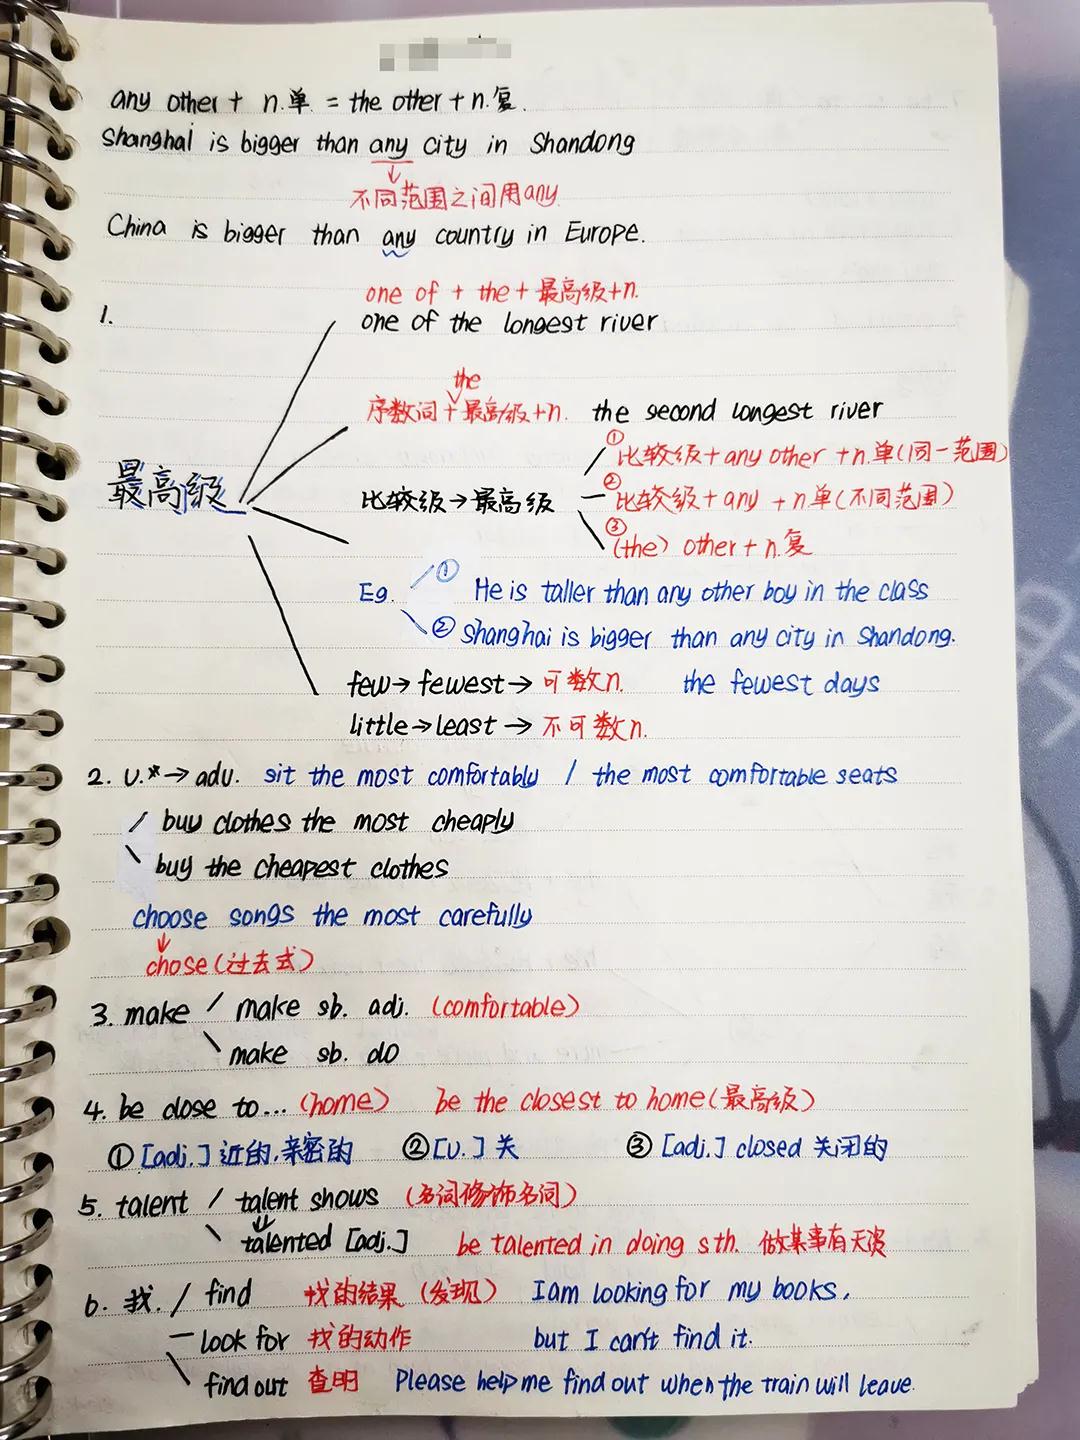 any other + n.单. = the other + n.复.
Shanghai is bigger than any city in Shandong
不同范围之间用any
China is bigger than any country in Europe.
one of + the + 最高级+n.
1. one of the longest river
the
序数词 + 最高级+n. the second longest river
① 比较级 + any other + n.单(同一范围)
最高级 比较级→最高级 ② 比较级 + any + n.单(不同范围)
③ (the) other + n.复
Eg. ① He is taller than any other boy in the class
② Shanghai is bigger than any city in Shandong.
few → fewest → 可数n. the fewest days
little → least → 不可数n.
2. v.* → adv. sit the most comfortably / the most comfortable seats
/ buy clothes the most cheaply
\ buy the cheapest clothes
choose songs the most carefully
chose (过去式)
3. make / make sb. adj. (comfortable)
\ make sb. do
4. be close to... (home) be the closest to home (最高级)
① [adj.] 近的,亲密的 ② [v.] 关 ③ [adj.] closed 关闭的
5. talent / talent shows (名词修饰名词)
\ talented [adj.] be talented in doing sth. 做某事有天资
6. 找. / find 找的结果 (发现) I am looking for my books,
— look for 找的动作 but I can't find it.
\ find out 查明 Please help me find out when the train will leave.